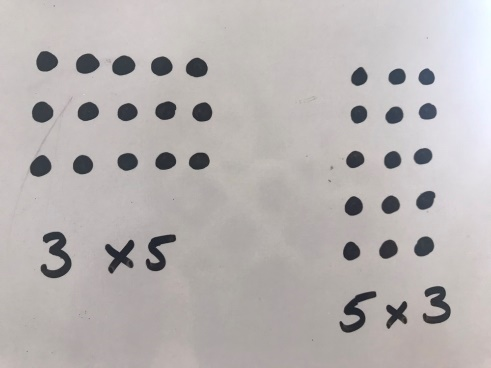 3 ×5
5×3